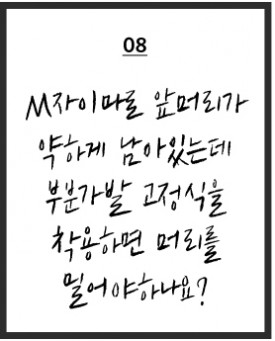 08
M자이마로 앞머리가
약하게 남아있는데
부분가발 고정식을
착용하면 머리를
밀어야하나요?